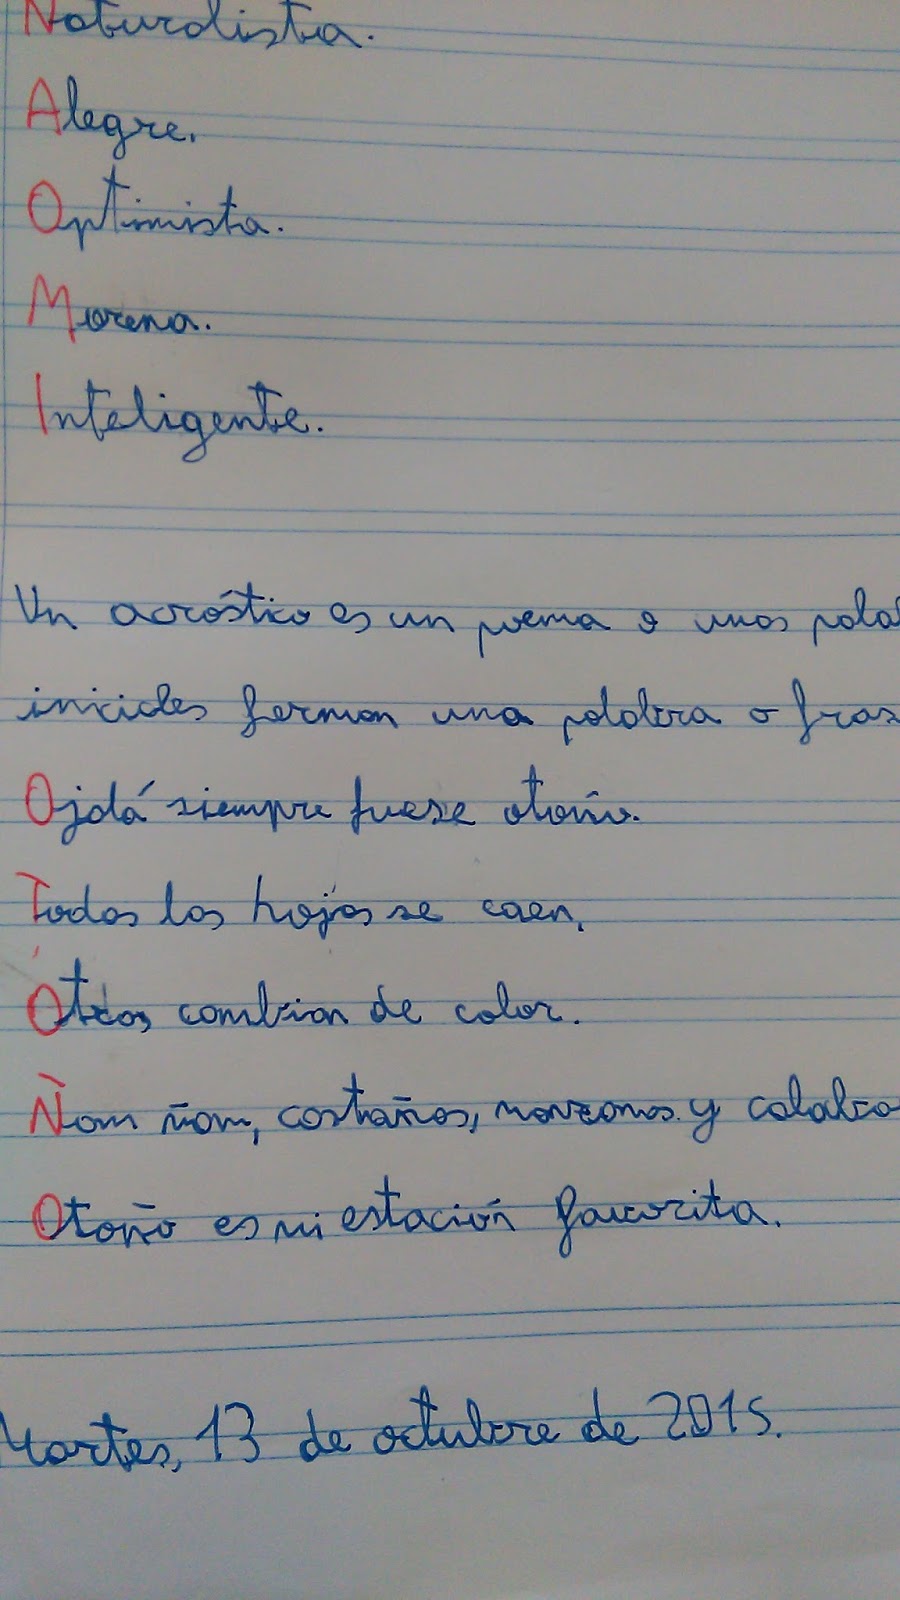 Naturalista.
Alegre.
Optimista.
Morena.
Inteligente.
Un acróstico es un poema o unas pala
iniciales forman una palabra o fras
Ojalá siempre fuese otoño.
Todas las hojas se caen,
Otras cambian de color.
Ñam ñam, castañas, manzanas y calaba
Otoño es mi estación favorita.
Martes, 13 de octubre de 2015.